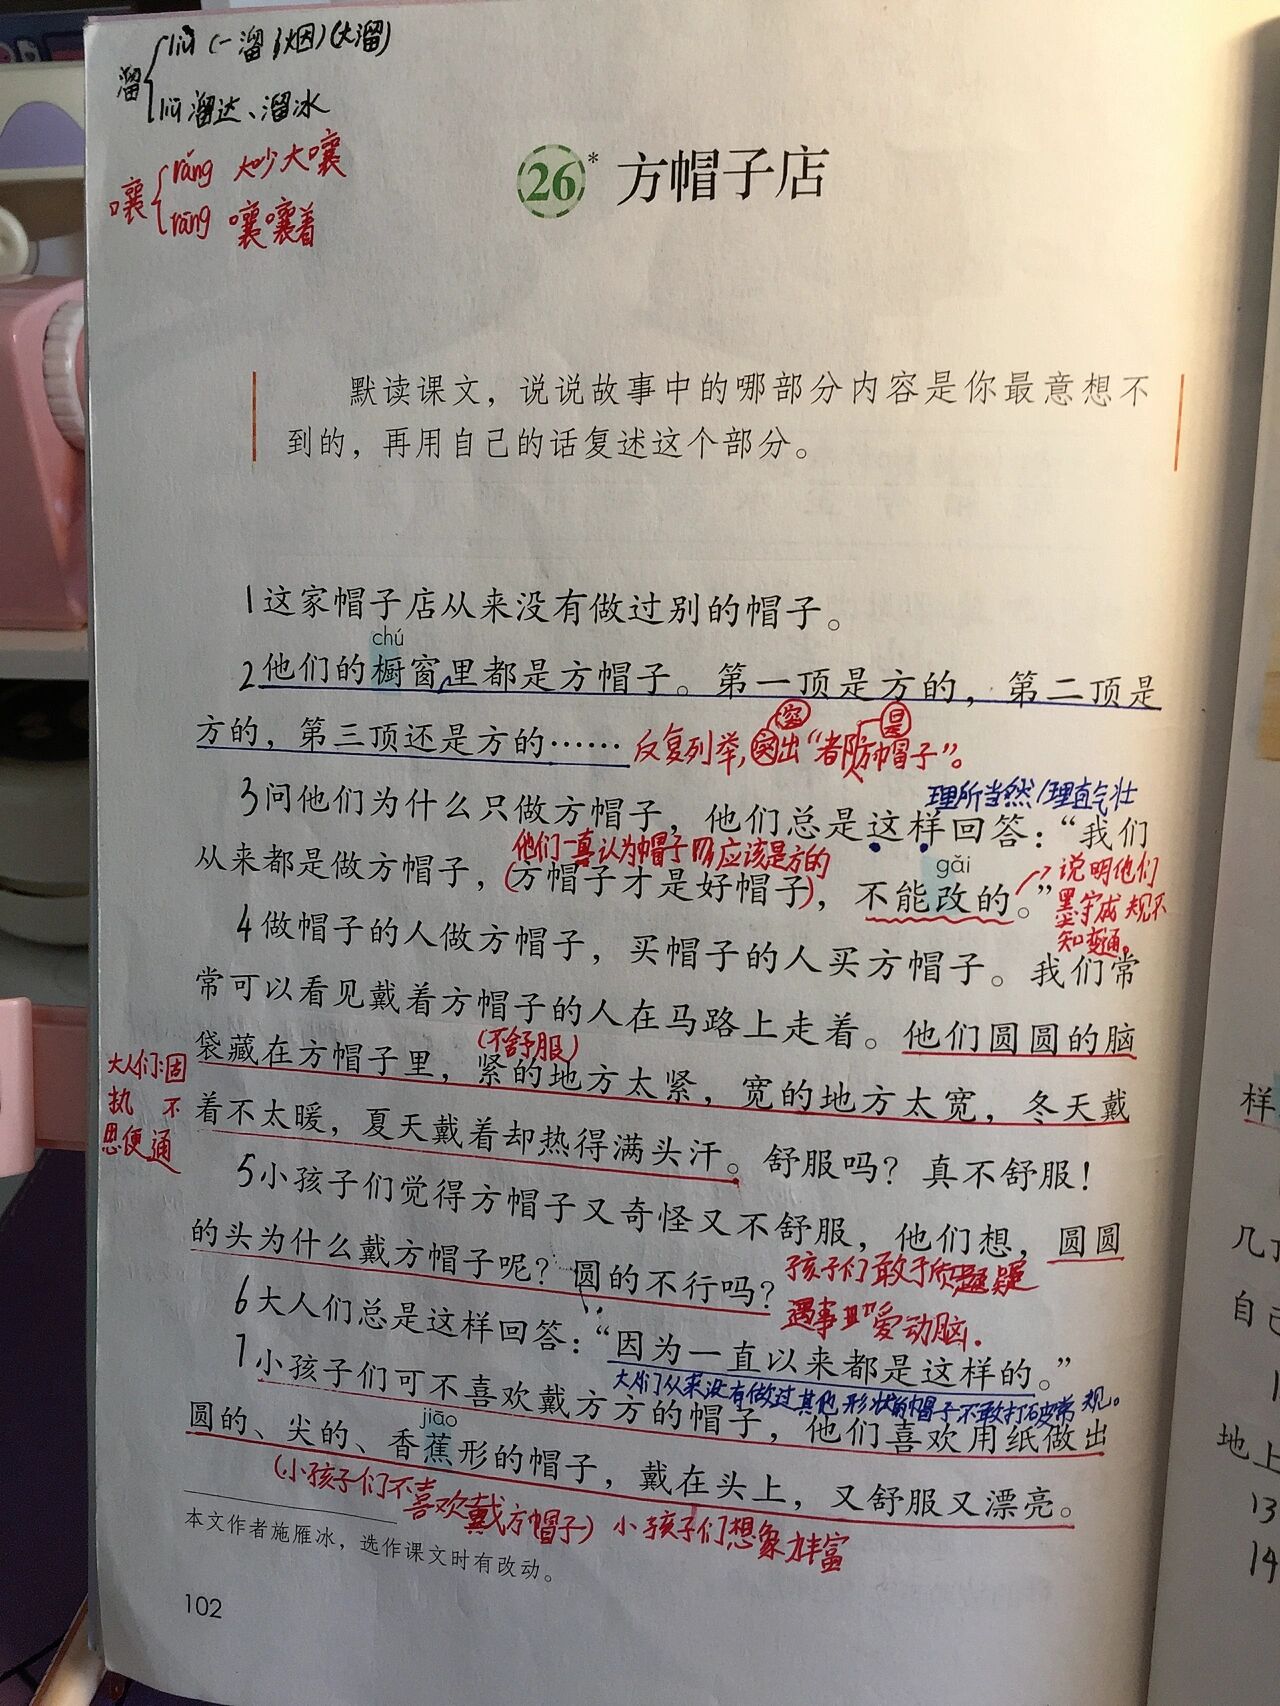 溜 liù (一溜烟)(大溜)
liū 溜达、溜冰
嚷 rǎng 大吵大嚷
rāng 嚷嚷着
26* 方帽子店
默读课文，说说故事中的哪部分内容是你最意想不
到的，再用自己的话复述这个部分。
1这家帽子店从来没有做过别的帽子。
chú
2他们的橱窗里都是方帽子。第一顶是方的，第二顶是
方的，第三顶还是方的……
反复列举,突出“都是方帽子”。
理所当然/理直气壮
3问他们为什么只做方帽子，他们总是这样回答：“我们
他们一直认为帽子就应该是方的
gǎi
从来都是做方帽子，(方帽子才是好帽子)，不能改的。”
说明他们
墨守成规不
知变通。
4做帽子的人做方帽子，买帽子的人买方帽子。我们常
常可以看见戴着方帽子的人在马路上走着。他们圆圆的脑
(不舒服)
袋藏在方帽子里，紧的地方太紧，宽的地方太宽，冬天戴
着不太暖，夏天戴着却热得满头汗。舒服吗？真不舒服！
大人们:固
执 不
思便通
5小孩子们觉得方帽子又奇怪又不舒服，他们想，圆圆
的头为什么戴方帽子呢？圆的不行吗？
孩子们敢于质疑
遇事 爱动脑.
6大人们总是这样回答：“因为一直以来都是这样的。”
大人们从来没有做过其他形状的帽子不敢打破常规。
7小孩子们可不喜欢戴方方的帽子，他们喜欢用纸做出
jiāo
圆的、尖的、香蕉形的帽子，戴在头上，又舒服又漂亮。
(小孩子们不喜欢戴方帽子) 小孩子们想象丰富
本文作者施雁冰，选作课文时有改动。
102
样
几
自己
地上
13
14